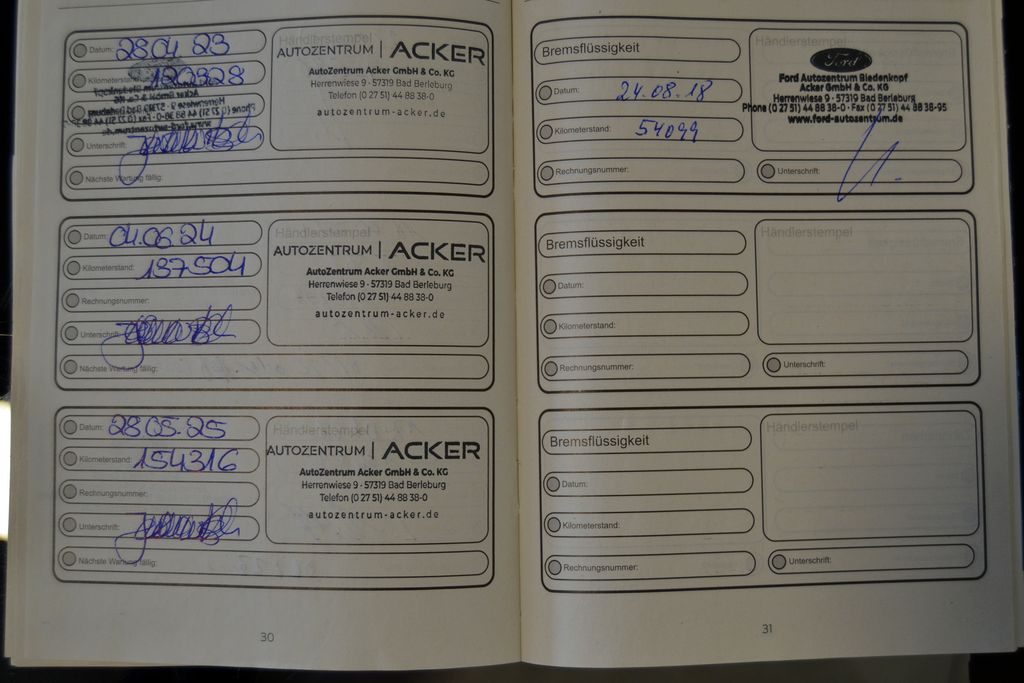 Datum: 28 04 23
Händlerstempel
AUTOZENTRUM | ACKER
Kilometerstand: 120328
AutoZentrum Acker GmbH & Co. KG
Herrenwiese 9 - 57319 Bad Berleburg
Telefon (0 27 51) 44 88 38-0
autozentrum-acker.de
Unterschrift:
Nächste Wartung fällig:
Datum: 04.06 24
Händlerstempel
AUTOZENTRUM | ACKER
Kilometerstand: 137504
AutoZentrum Acker GmbH & Co. KG
Herrenwiese 9 - 57319 Bad Berleburg
Rechnungsnummer:
Telefon (0 27 51) 44 88 38-0
autozentrum-acker.de
Unterschrift:
Nächste Wartung fällig:
Datum: 28 05. 25
Händlerstempel
AUTOZENTRUM | ACKER
Kilometerstand: 154316
AutoZentrum Acker GmbH & Co. KG
Herrenwiese 9 - 57319 Bad Berleburg
Rechnungsnummer:
Telefon (0 27 51) 44 88 38-0
autozentrum-acker.de
Unterschrift:
Nächste Wartung fällig:
30
Bremsflüssigkeit
Händlerstempel
Ford
Ford Autozentrum Biedenkopf
Acker GmbH & Co. KG
Herrenwiese 9 - 57319 Bad Berleburg
Phone (0 27 51) 44 88 38-0 - Fax (0 27 51) 44 88 38-95
www.ford-autozentrum.de
Datum: 24.08.18
Kilometerstand: 54099
Rechnungsnummer:
Unterschrift:
Bremsflüssigkeit
Händlerstempel
Datum:
Kilometerstand:
Rechnungsnummer:
Unterschrift:
Bremsflüssigkeit
Händlerstempel
Datum:
Kilometerstand:
Rechnungsnummer:
Unterschrift:
31